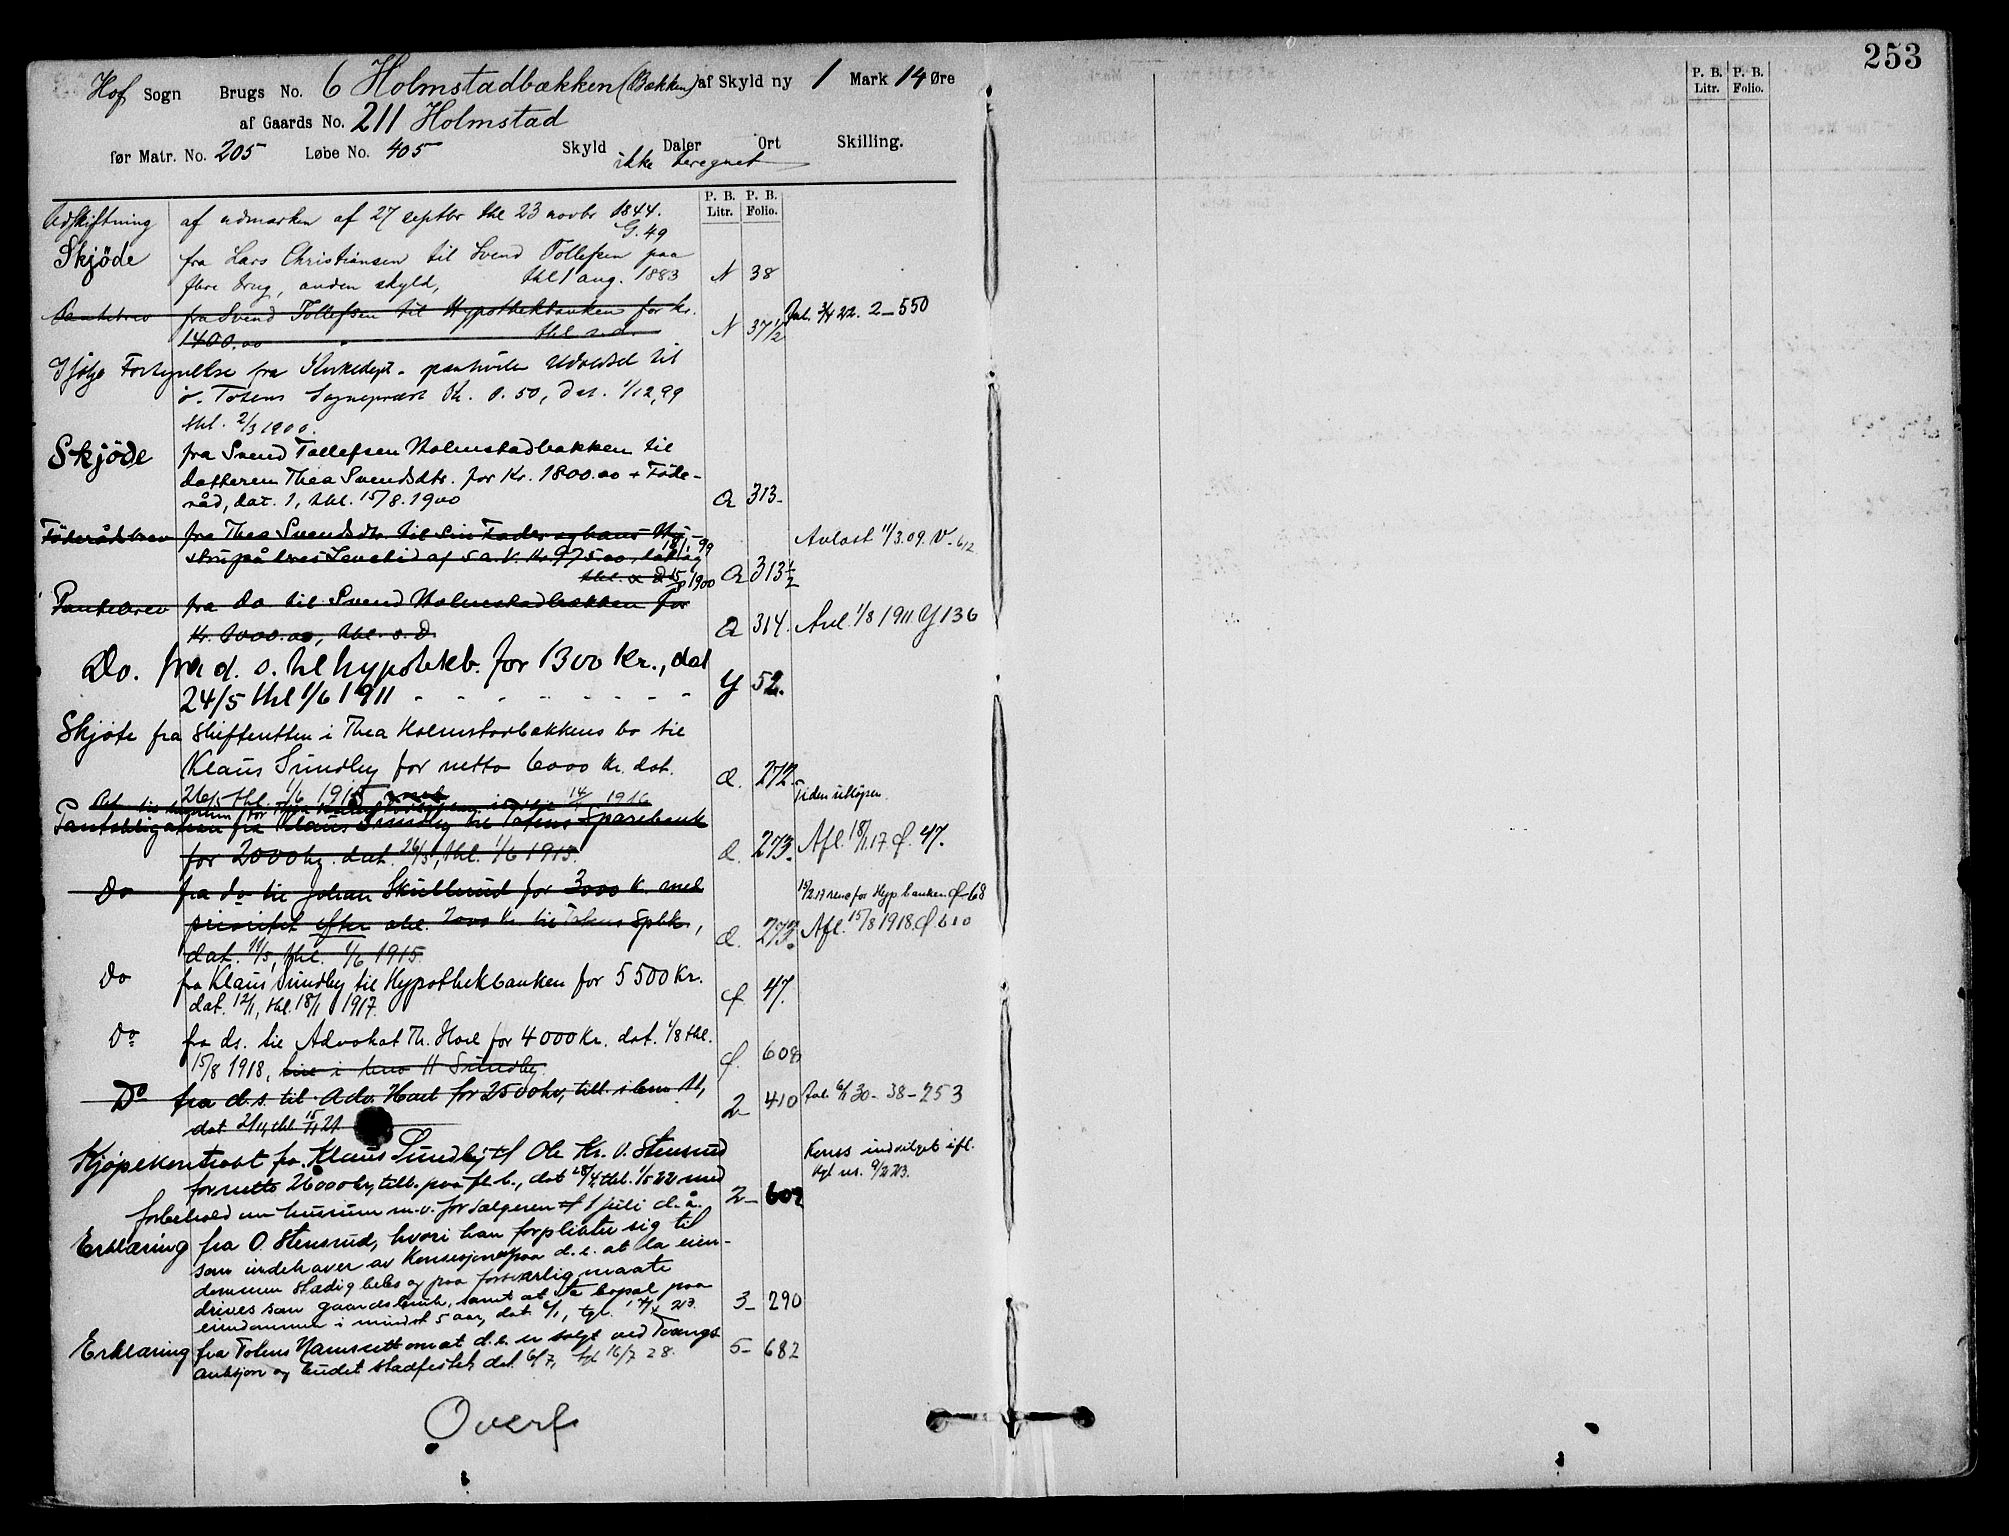 253
Hof Sogn Brugs No. 6 Holmstadbækken (Bækken) af Skyld ny 1 Mark 14 Øre
af Gaards No. 211 Holmstad
før Matr. No. 205 Løbe No. 405 Skyld Daler Ort Skilling.
ikke beregnet
P. B. Litr. P. B. Folio.
P. B. Litr. P. B. Folio.
Udskiftning af udmarken af 27 septbr thl 23 novbr 1844.
G. 49
Skjöde fra Lars Christiansen til Svend Tollefsen paa
flere brug, anden skyld, thl 1 aug. 1883 N 38
Pantebrev fra Svend Tollefsen til Hypothekbanken for kr.
1400.00 " thl s.d. N 37 1/2 2-550
Ifølge Fortegnelse fra
ö. Totens Sognepræst Kr. 0.50, dat. 1/12.99
thl. 2/3 1900.
Skjöde fra Svend Tollefsen Holmstadbækken til
datteren Thea Svendsdtr. for Kr. 1800.00 + Föde-
råd, dat. 1, thl. 15/8.1900 Q 313-
Föderådsbrev fra Thea Svendsdtr. til Sin Fader og hans Hu-
stru på deres Levetid af 5 a. V. Kr 975.00, dat 18/1-99
thl. 15/8 1900 Q 313 1/2 Avlöst 11/3.09. V-612
Pantebrev fra do til Svend Holmstadbækken for
Kr. 1000.00, thl. s. D. Q 314. Avl. 1/8 1911 Y 136
Do. fra d. s. til hypothkb. for 1300 Kr., dat
24/5 thl 1/6 1911 Y 52.
Skjøte fra Skifteretten i Thea Holmstadbækkens bo til
Klaus Sundby for netto 6000 kr. dat.
26/5 thl. 1/6 1915 d. 272.
Tiden utløpen
Pantobligation fra Klaus Sundby til Totens Sparebank
for 2000 kr. dat. 26/5, thl. 1/6 1915. d. 273. Afl. 18/1.17 f. 47.
Do fra do til Johan Skullerud for 3000 k. med
prioritet efter obl. 2000 kr. til Totens Spbk,
dat. 11/5, thl. 1/6 1915. d. 273. Afl. 15/8 1918. f. 610
Do fra Klaus Sundby til Hypothekbanken for 5500 Kr.
dat. 12/1, thl. 18/1 1917. f. 47.
Do fra ds. til Advokat Th. Hoel for 4000 Kr. dat. 1/8 thl.
15/8 1918, f. 608
Do fra d.s. til Adv. Hoel for 2500 kr,
2- 410 38-253
Kjøpekontrakt fra Klaus Sundby til Ole Kr. O. Stensrud
for netto 26000 kr, till. paa fl. b., dat 28/4 thl. 1/5 22 med
forbehold om husrum m.v. for sælgeren til 1 juli d.å. 2- 602
Konss indvilget ifl.
kgl. res. 9/2 23.
Erklæring fra O. Stensrud, hvori han forpligter sig til
som indehaver av Konsesjon paa d.e. at la eien-
dommen stadig bebos og paa forsvarlig maate
drives som gaardsbruk, samt at ta bopæl paa
eiendommen i mindst 5 aar, 3- 290
Erklæring fra Totens Namsrett om at d.e. er solgt ved Tvangs
auksjon og budet stadfestet dat. 6/7, tgl 16/7 28. 5- 682
Overf